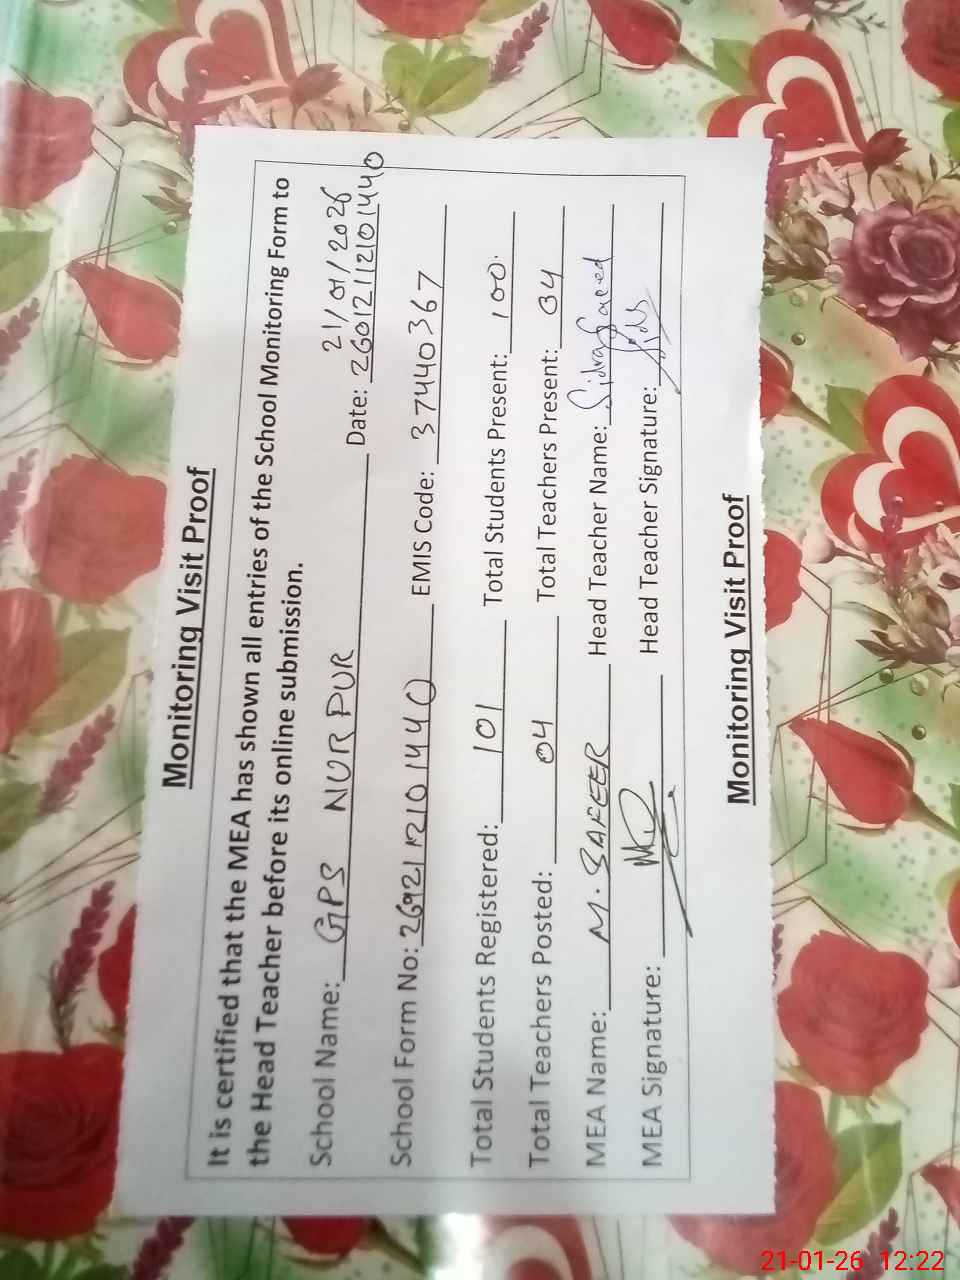 Monitoring Visit Proof
It is certified that the MEA has shown all entries of the School Monitoring Form to
the Head Teacher before its online submission.
21/01/2026
School Name: GPS NURPUR Date: 26012112101440
School Form No: EMIS Code: 37440367
Total Students Registered: 101 Total Students Present: 100.
Total Teachers Posted: 04 Total Teachers Present: 04
MEA Name: M. SAFEER Head Teacher Name: Sidra Saeed
MEA Signature: Head Teacher Signature:
Monitoring Visit Proof
21-01-26 12:22